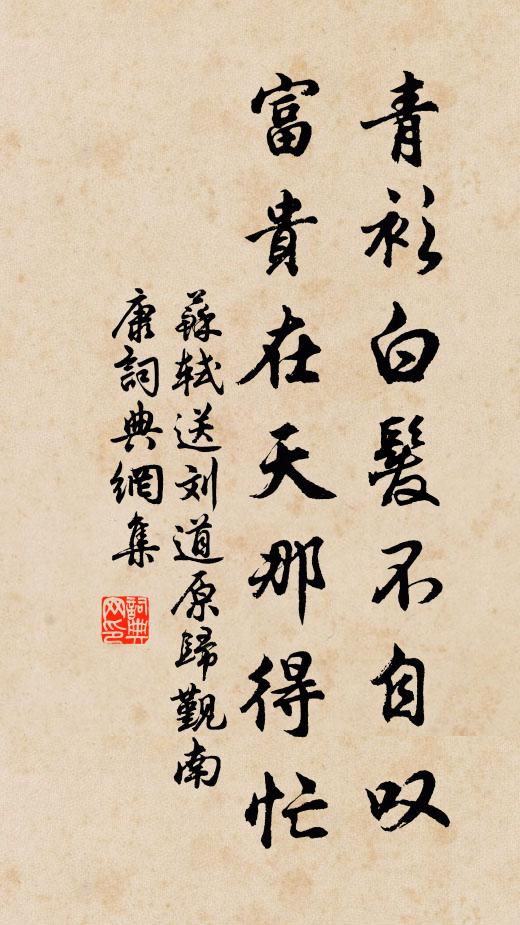 青衫白髮不自叹
富貴在天那得忙
蘇軾送刘道原歸觀南
康詞典網集
詞典
网印